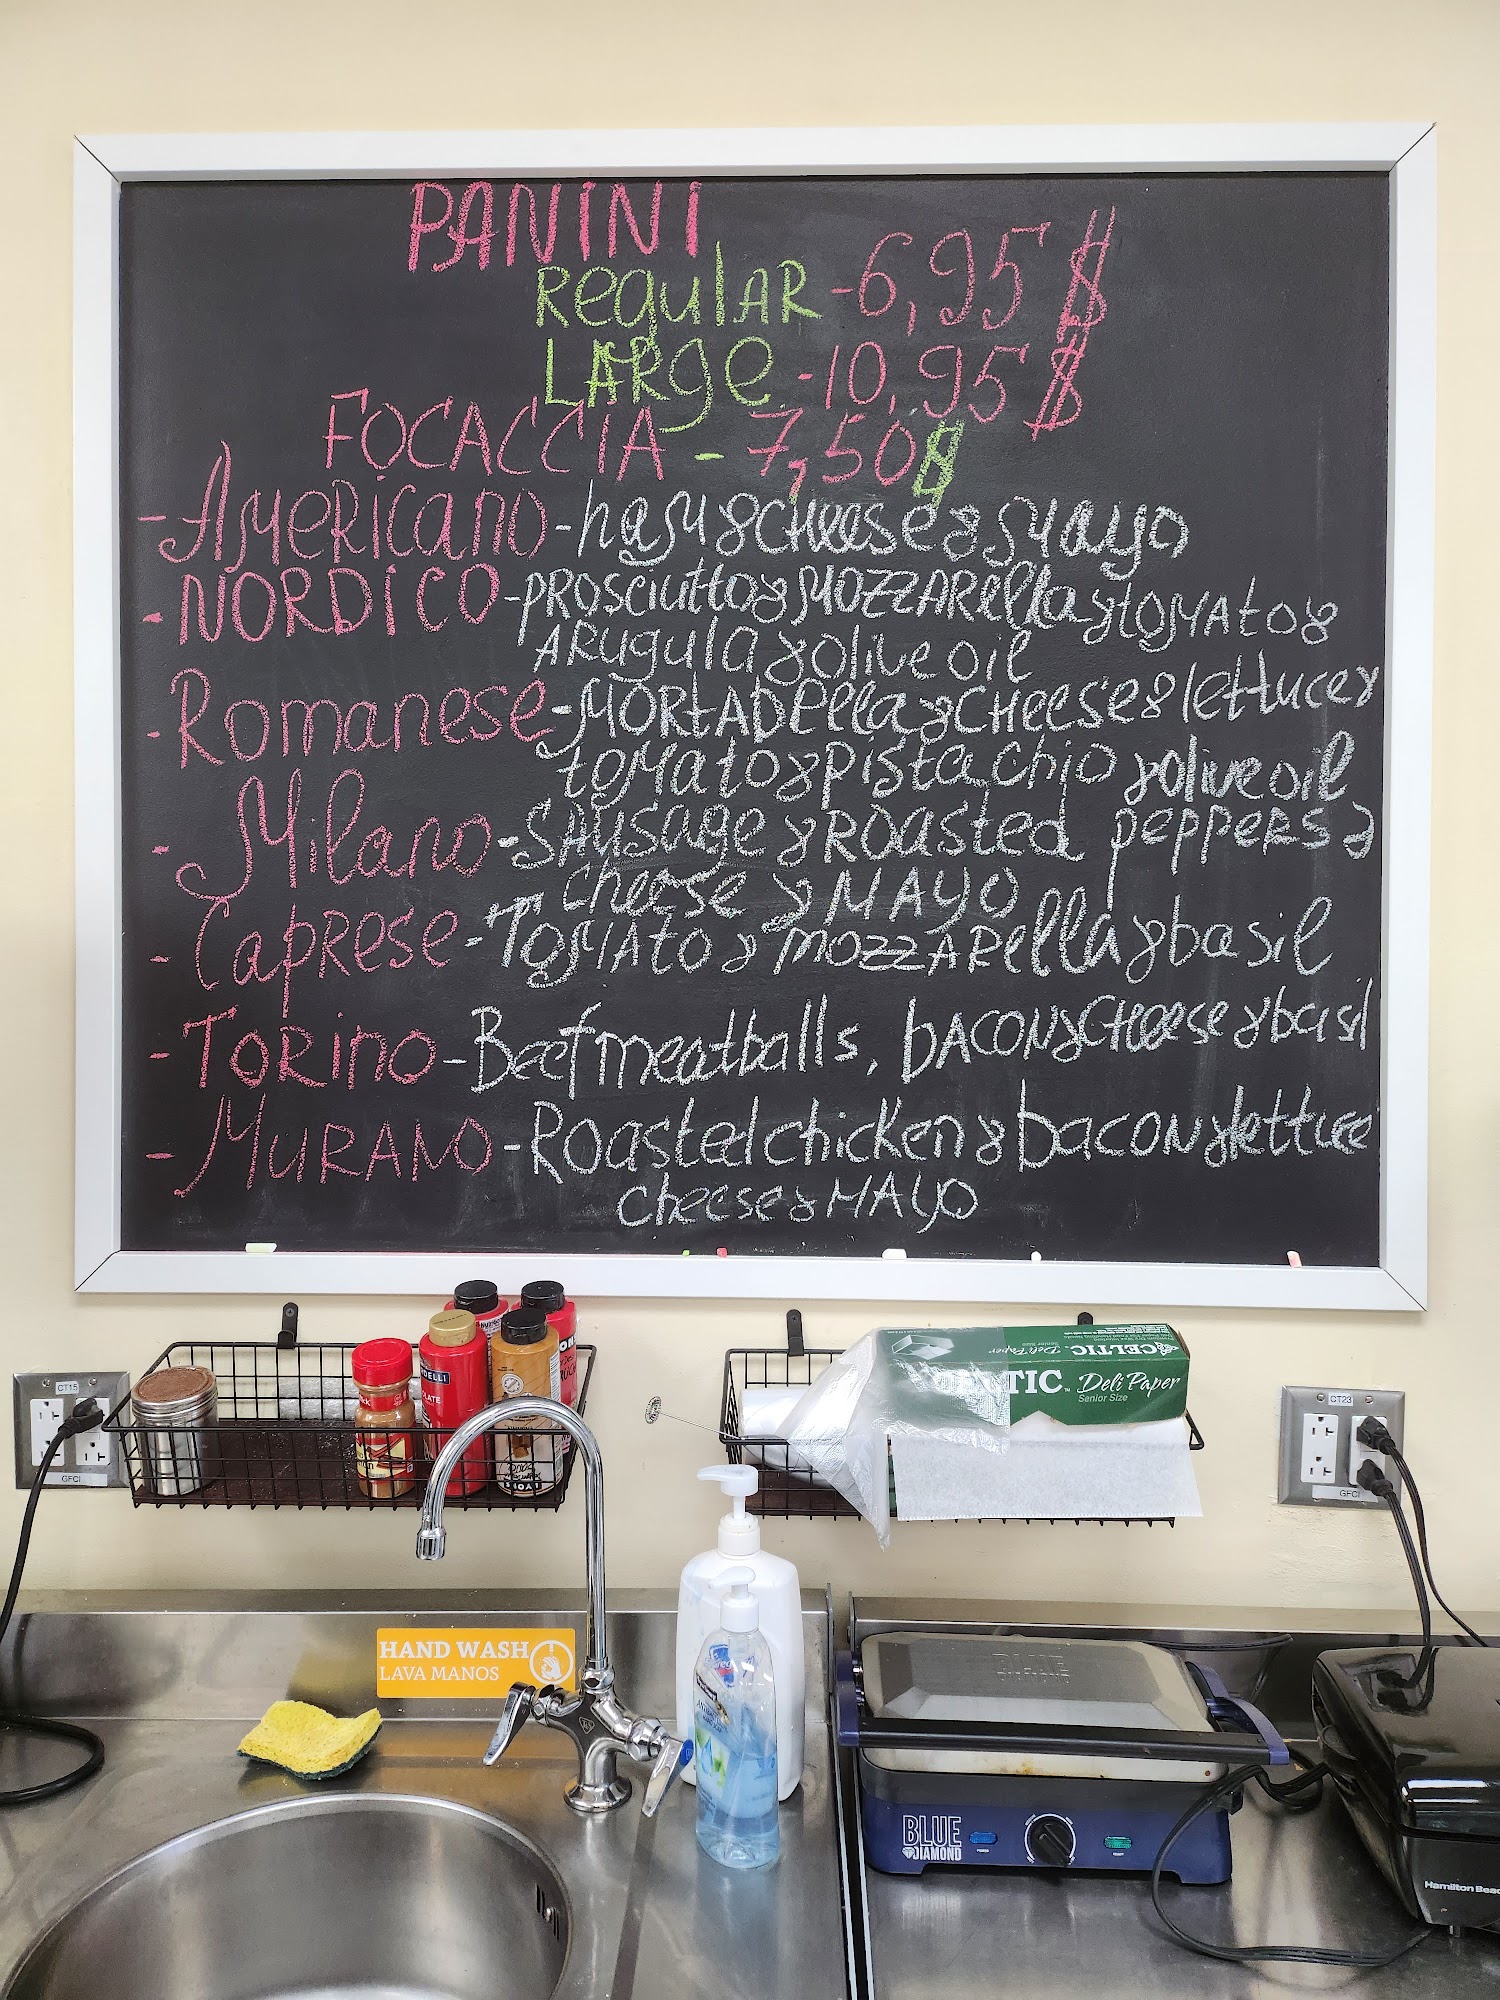 PANINI
Regular - 6,95 $
Large - 10,95 $
FOCACCIA - 7,50 $
- Americano - ham & cheese & mayo
- NORDICO - prosciutto & mozzarella & tomato &
arugula & olive oil
- Romanese - mortadella & cheese & lettuce &
tomato & pistachio & olive oil
- Milano - sausage & roasted peppers &
cheese & MAYO
- Caprese - Tomato & mozzarella & basil
- Torino - Beef meatballs, bacon & cheese & basil
- Murano - Roasted chicken & bacon & lettuce
cheese & MAYO
CELTIC
Deli Paper
CELTIC™ Deli Paper
Senior Size
CT15
GFCI
CT23
GFCI
HAND WASH
LAVA MANOS
BLUE
BLUE
DIAMOND
Hamilton Beach